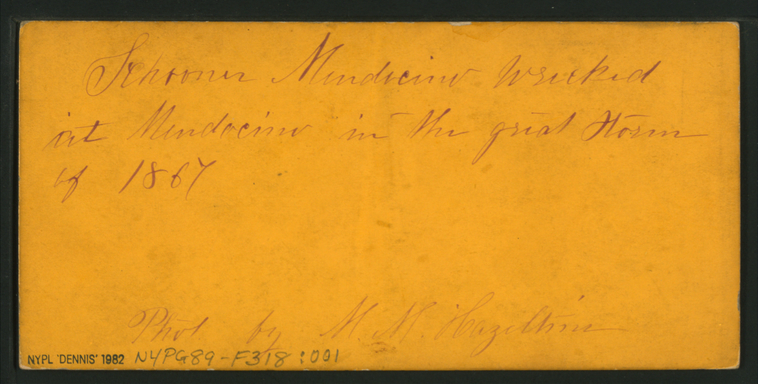 Schooner Mendocino Wrecked
at Mendocino in the great storm
of 1867
Phot by M. M. Hazeltine
NYPL 'DENNIS' 1982 NYPG89-F318:001